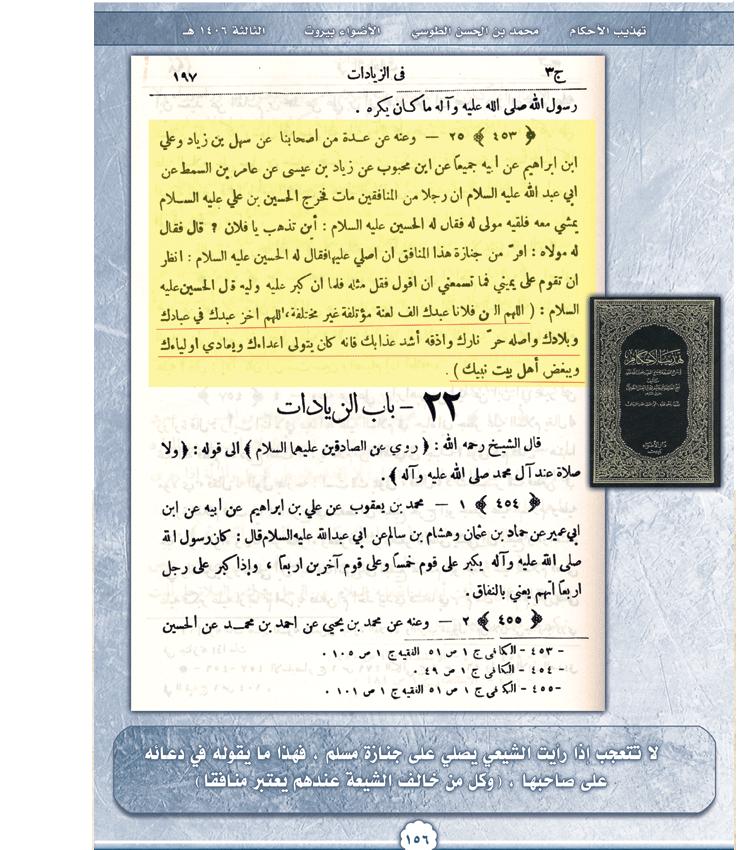 تهذيب الأحكام محمد بن الحسن الطوسي الأضواء بيروت الثالثة ١٤٠٦ هـ
ج٣ في الزيادات ١٩٧
رسول الله صلى الله عليه وآله ما كان يكره .
﴿ ٤٥٣ ﴾ ٢٥ — وعنه عن عدة من أصحابنا عن سهل بن زياد وعلي
ابن ابراهيم عن أبيه جميعاً عن ابن محبوب عن زياد بن عيسى عن عامر بن السمط عن
ابي عبد الله عليه السلام ان رجلا من المنافقين مات فخرج الحسين بن علي عليه السلام
يمشي معه فلقيه مولى له فقال له الحسين عليه السلام : أين تذهب يا فلان ? قال فقال
له مولاه : افرّ من جنازة هذا المنافق ان اصلي عليها فقال له الحسين عليه السلام : انظر
ان تقوم على يميني فما تسمعني ان اقول فقل مثله فلما ان كبر عليه وليه قال الحسين عليه
السلام : ( اللهم العن فلانا عبدك الف لعنة مؤتلفة غير مختلفة، اللهم اخز عبدك في عبادك
وبلادك واصله حرّ نارك واذقه أشد عذابك فانه كان يتولى اعداءك ويعادي اولياءك
ويبغض أهل بيت نبيك ) .
٢٢ – باب الزيادات
قال الشيخ رحمه الله : ﴿ روي عن الصادقين عليهما السلام ﴾ الى قوله : ﴿ ولا
صلاة عند آل محمد صلى الله عليه وآله ﴾ .
﴿ ٤٥٤ ﴾ ١ — محمد بن يعقوب عن علي بن ابراهيم عن أبيه عن ابن
ابي عمير عن حماد بن عثمان وهشام بن سالم عن ابي عبدالله عليه السلام قال : كان رسول الله
صلى الله عليه وآله يكبر على قوم خمساً وعلى قوم آخرين اربعاً ، وإذا كبر على رجل
اربعاً اتهم يعني بالنفاق .
﴿ ٤٥٥ ﴾ ٢ — وعنه عن محمد بن يحيى عن احمد بن محمد عن الحسين
- ٤٥٣ - الكافي ج ١ ص ٥١ الفقيه ج ١ ص ١٠٥ .
- ٤٥٤ - الكافي ج ١ ص ٤٩ .
- ٤٥٥ - الكافي ج ١ ص ٥١ الفقيه ج ١ ص ١٠١ .
تهذيب الأحكام
لا تتعجب إذا رأيت الشيعي يصلي على جنازة مسلم ، فهذا ما يقوله في دعائه
على صاحبها ، (وكل من خالف الشيعة عندهم يعتبر منافقا)
١٥٦